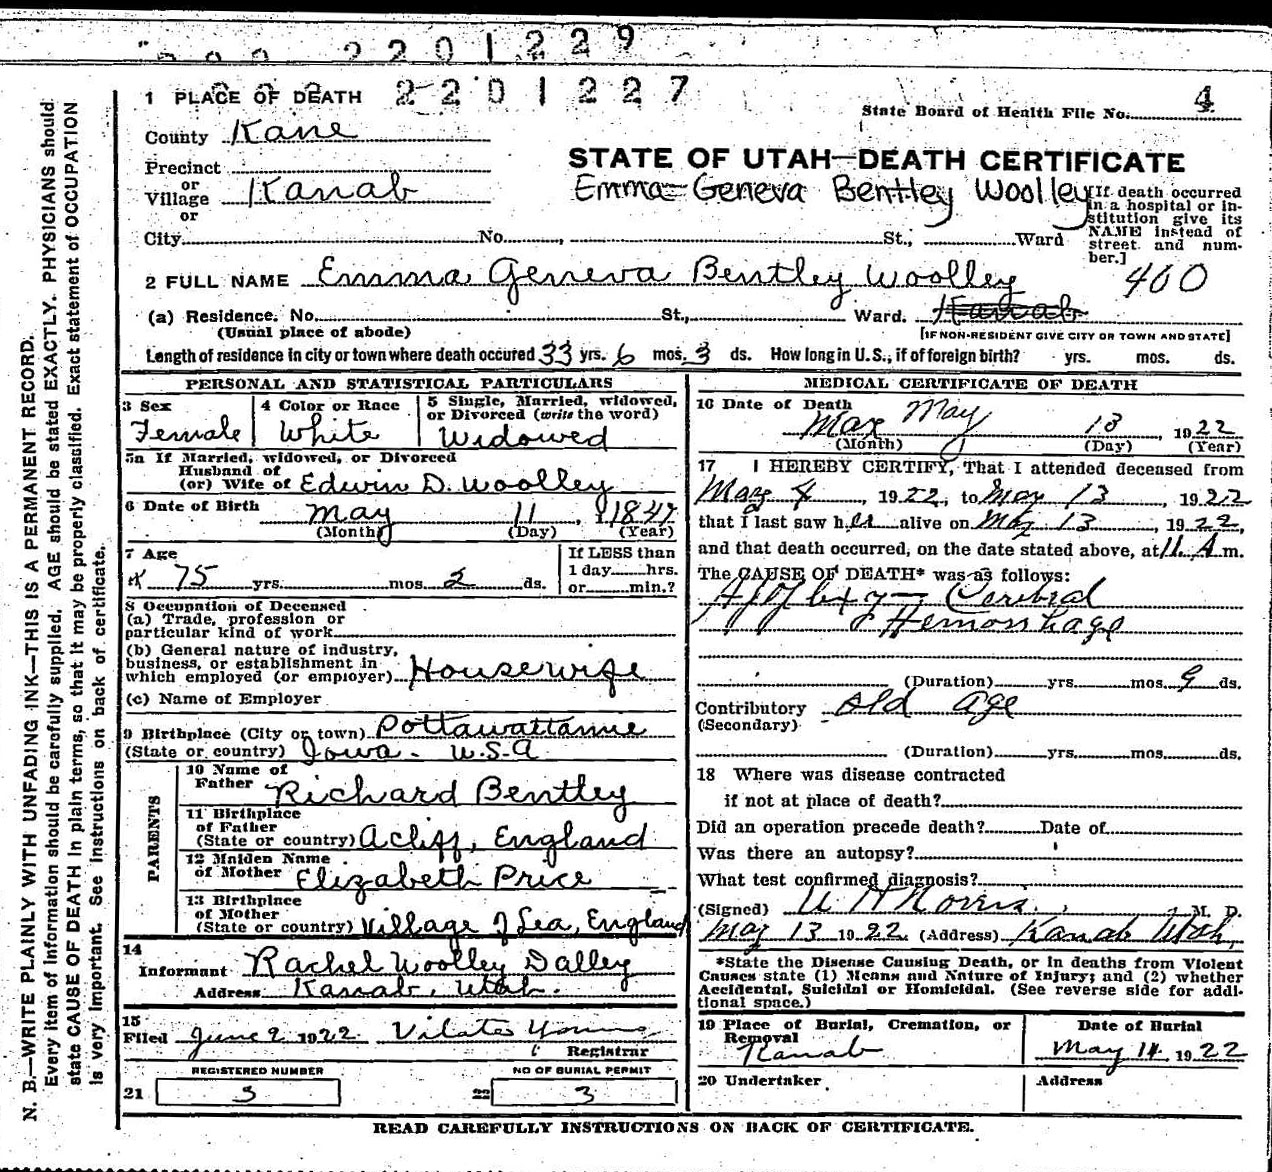 2201229
2201227
1 PLACE OF DEATH
State Board of Health File No. 4
County Kane
STATE OF UTAH—DEATH CERTIFICATE
Precinct
or
Village Kanab
or
Emma Geneva Bentley Woolley
[If death occurred in a hospital or institution give its NAME instead of street and number.]
City No. , St., Ward
2 FULL NAME Emma Geneva Bentley Woolley
460
(a) Residence. No. St., Ward. Kanab
(Usual place of abode) [IF NON-RESIDENT GIVE CITY OR TOWN AND STATE]
Length of residence in city or town where death occured 33 yrs. 6 mos. 3 ds. How long in U.S., if of foreign birth? yrs. mos. ds.
PERSONAL AND STATISTICAL PARTICULARS
3 Sex Female
4 Color or Race White
5 Single, Married, widowed, or Divorced (write the word) Widowed
5a If Married, widowed, or Divorced
Husband of
(or) Wife of Edwin D. Woolley
6 Date of Birth May 11, 1847
(Month) (Day) (Year)
7 Age
75 yrs. mos. 2 ds.
If LESS than
1 day hrs.
or min.?
8 Occupation of Deceased
(a) Trade, profession or
particular kind of work
(b) General nature of industry,
business, or establishment in
which employed (or employer) Housewife
(c) Name of Employer
9 Birthplace (City or town) Pottawattamie
(State or country) Iowa - U.S.A
PARENTS
10 Name of
Father Richard Bentley
11 Birthplace
of Father
(State or country) Acliff, England
12 Maiden Name
of Mother Elizabeth Price
13 Birthplace
of Mother
(State or country) Village of Lea, England
14
Informant Rachel Woolley Dalley
Address Kanab, Utah.
15
Filed June 2 1922 Vilate Young
Registrar
REGISTERED NUMBER
21 3
NO OF BURIAL PERMIT
22 3
MEDICAL CERTIFICATE OF DEATH
16 Date of Death
May May 13, 1922
(Month) (Day) (Year)
17 I HEREBY CERTIFY, That I attended deceased from
May 4, 1922, to May 13, 1922
that I last saw her alive on May 13, 1922,
and that death occurred, on the date stated above, at 11 A m.
The CAUSE OF DEATH* was as follows:
Apoplexy — Cerebral
Hemorrhage
(Duration) yrs. mos. 9 ds.
Contributory Old age
(Secondary)
(Duration) yrs. mos. ds.
18 Where was disease contracted
if not at place of death?
Did an operation precede death? Date of
Was there an autopsy?
What test confirmed diagnosis?
(Signed) W H Norris, M. D.
May 13 1922 (Address) Kanab Utah,
*State the Disease Causing Death, or in deaths from Violent
Causes state (1) Means and Nature of Injury; and (2) whether
Accidental, Suicidal or Homicidal. (See reverse side for addi-
tional space.)
19 Place of Burial, Cremation, or
Removal
Kanab
Date of Burial
May 14 1922
20 Undertaker
Address
READ CAREFULLY INSTRUCTIONS ON BACK OF CERTIFICATE.
N. B.—WRITE PLAINLY WITH UNFADING INK—THIS IS A PERMANENT RECORD.
Every item of information should be carefully supplied. AGE should be stated EXACTLY. PHYSICIANS should
state CAUSE OF DEATH in plain terms, so that it may be properly classified. Exact statement of OCCUPATION
is very important. See instructions on back of certificate.